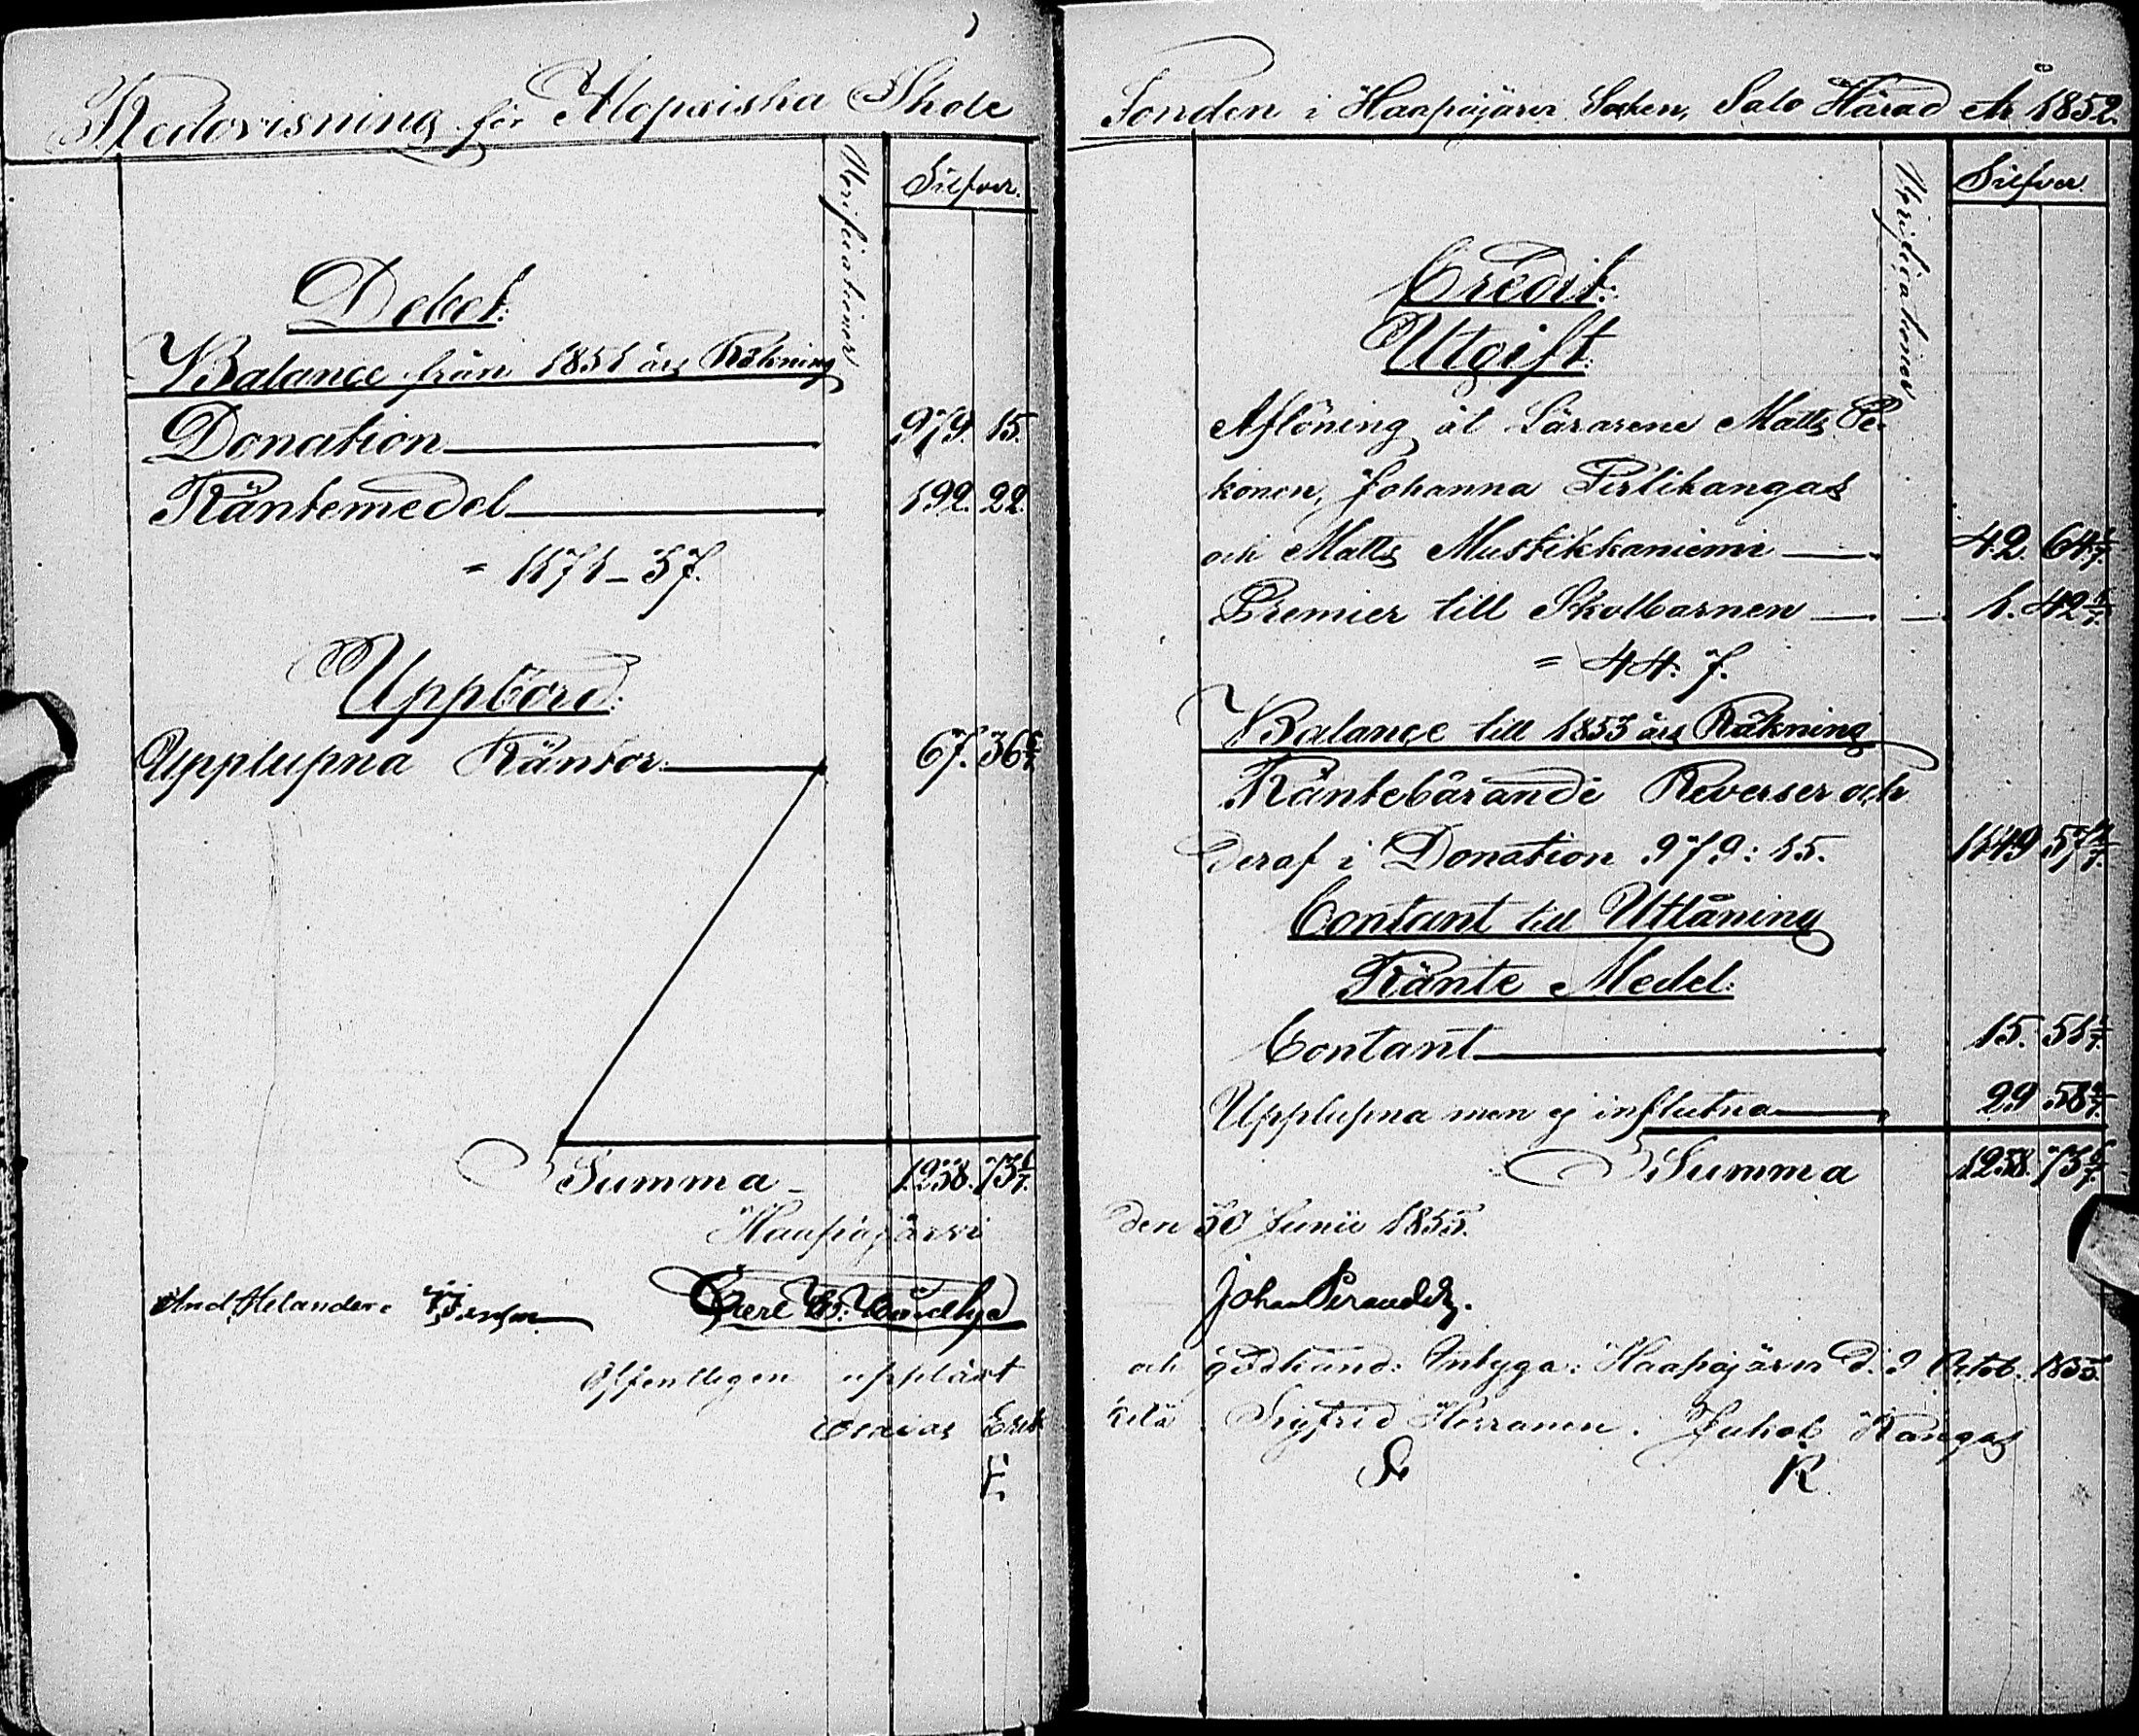 Redovisning för Alopæiska Skole
Verificationer
Silfver.
Debet:
Balance från 1851 års Räkning
Donation 979. 15.
Räntemedel 192. 22.
= 1171–37.
Uppbörd:
Upplupna Räntor 67. 36 6/7
Summa 1238. 73 6/7.
Haapajärvi
And. Helander
Offentligen uppläst
Esaias Erk
E
Fonden i Haapajärvi Socken, Salo Härad år 1852.
Verificationer
Silfver
Credit:
Utgift:
Aflöning åt Lärarene Matts Pe-
konen, Johanna Pirlikangas
och Matts Mustikkaniemi 42. 64 2/7.
Premier till Skolbarnen 1. 42 5/7.
= 44. 7.
Balance till 1853 års Räkning
Räntebärande Reverser och
deraf i Donation 979: 15. 1149 57 1/7.
Contant till Utlåning
Ränte Medel:
Contant 15. 51 1/7.
Upplupna men ej influtna 29 58 4/7.
Summa 1238. 73 6/7.
den 30 Junii 1855.
Johan
och godkänd: Intyga: Haapajärvi d. 9 Octob. 1855.
kilä Sigfrid Herranen. Jakob Kangas
S K